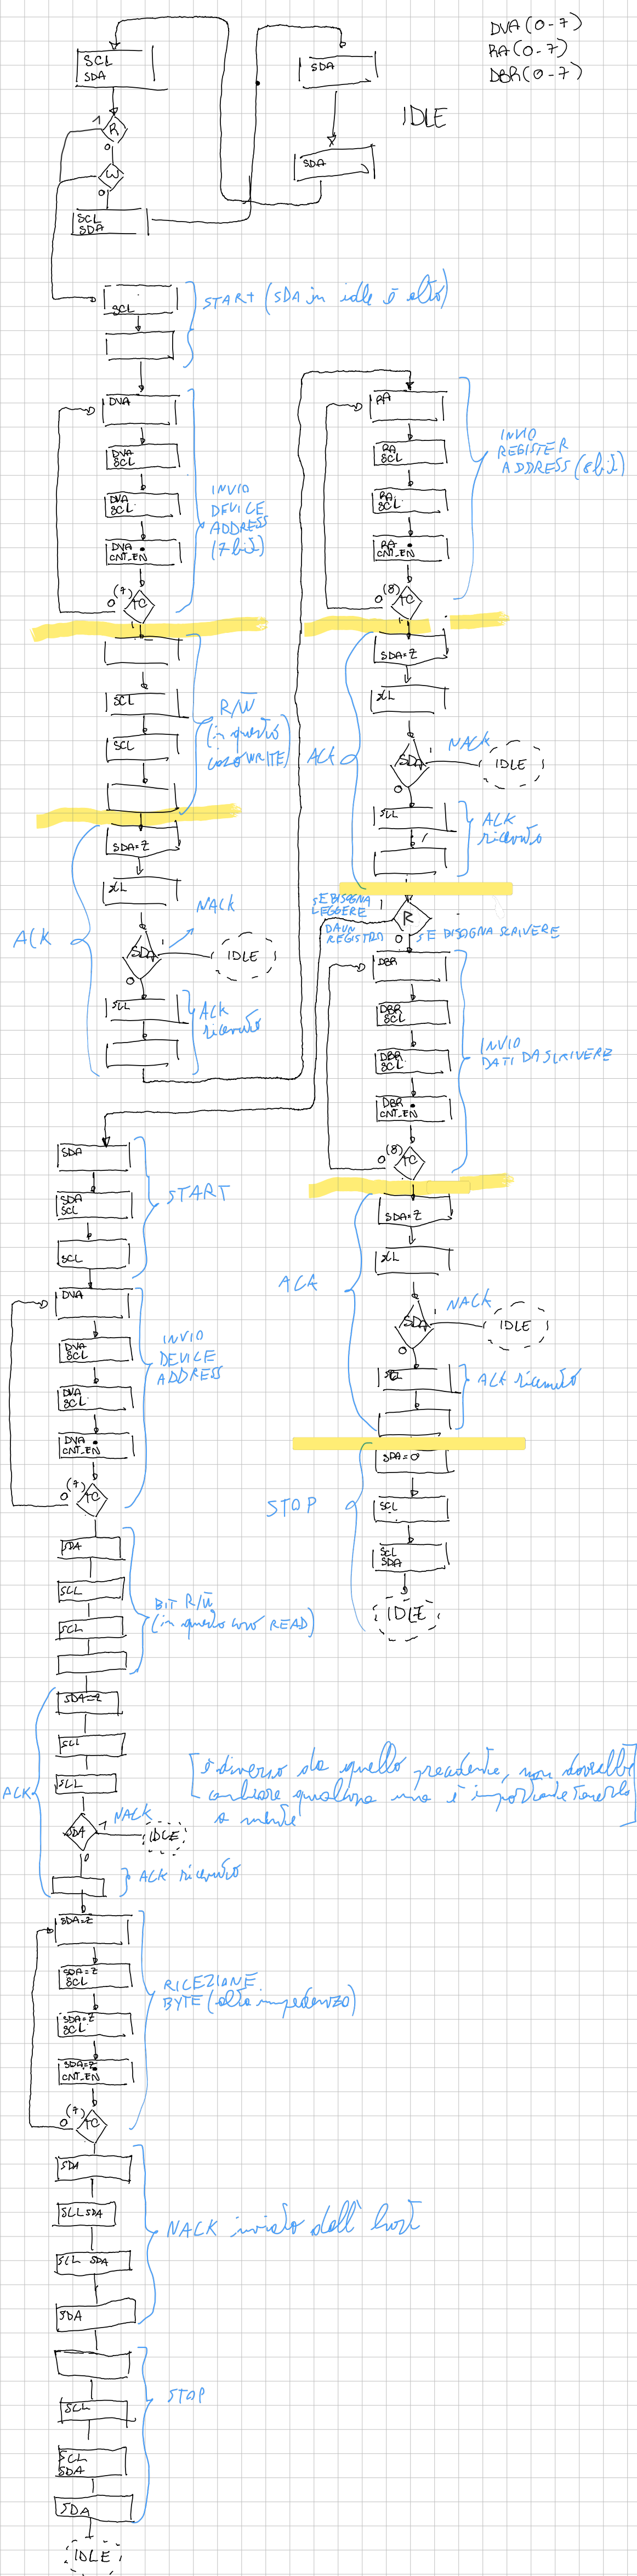 DVA (0-7)
RA (0-7)
DBR (0-7)
IDLE
SCL
SDA
1
R
0
W
0
SCL
SDA
SDA
SDA
SCL
START (SDA in idle è alto)
DVA
DVA
SCL
DVA
SCL
DVA
CNT_EN
(7)
0
TC
1
INVIO
DEVICE
ADDRESS
(7 bit)
SCL
SCL
R/W
(in questo
caso WRITE)
SDA=Z
SCL
SDA
1
0
NACK
IDLE
SCL
ACK
ricevuto
ACK
RA
RA
SCL
RA
SCL
RA
CNT_EN
(8)
0
TC
1
INVIO
REGISTER
ADDRESS (8 bit)
SDA=Z
SCL
SDA
1
0
NACK
IDLE
SCL
ACK
ricevuto
ACK
SE BISOGNA
LEGGERE
DA UN
REGISTRO
1
R
0
SE BISOGNA SCRIVERE
DBR
DBR
SCL
DBR
SCL
DBR
CNT_EN
(8)
0
TC
1
INVIO
DATI DA SCRIVERE
SDA=Z
SCL
SDA
1
0
NACK
IDLE
SCL
ACK ricevuto
ACK
SDA=0
SCL
SCL
SDA
IDLE
STOP
SDA
SDA
SCL
SCL
START
DVA
DVA
SCL
DVA
SCL
DVA
CNT_EN
(7)
0
TC
INVIO
DEVICE
ADDRESS
SDA
SCL
SCL
BIT R/W
(in questo caso READ)
SDA=Z
SCL
SCL
SDA
1
0
NACK
IDLE
ACK ricevuto
ACK
[è diverso da quello precedente, non dovrebbe
cambiare qualcosa ma è importante tenerlo
a mente]
SDA=Z
SDA=Z
SCL
SDA=Z
SCL
SDA=Z
CNT_EN
(7)
0
TC
RICEZIONE
BYTE (alta impedenza)
SDA
SCL SDA
SCL SDA
SDA
NACK inviato dall' host
SCL
SCL
SDA
SDA
STOP
IDLE